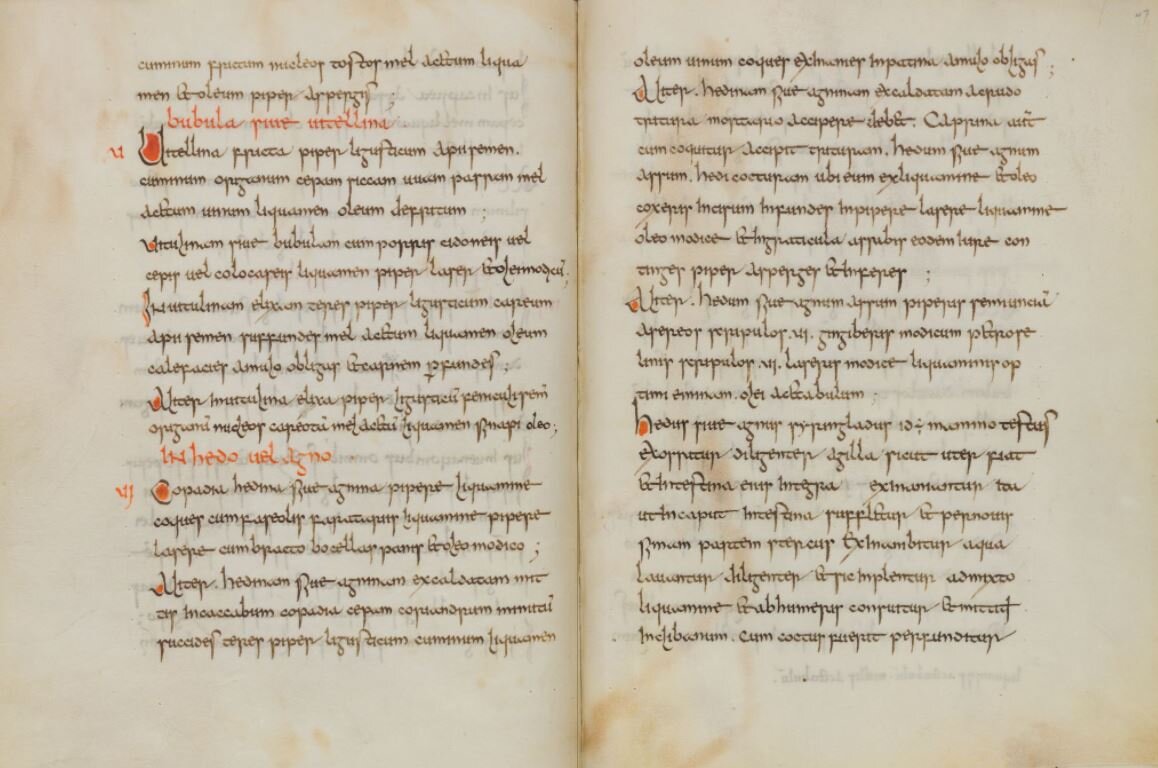 cuminum frictum nucleos tostos mel acetum liqua
men et oleum piper aspergis ;
bubula siue uitellina
VI Uitellina fricta piper ligusticum apii semen.
cuminum origanum cepam siccam uuam passam mel
acetum uinum liquamen oleum defritum ;
uitulinam siue bubulam cum porris cidoneis uel
cepis uel colocaseis liquamen piper laser et olei modicū ;
In uitulinam elixam teres piper ligusticum careum
apii semen suffundes mel acetum liquamen oleum
calefacies amulo obligas et carnem ꝑfundes ;
Aliter in uitulina elixa piper ligusticū feniculi semē
origanū nucleos careotā mel acetū liquamen sinapi oleo ;
IN hedo uel agno
VII Copadia hedina siue agnina pipere liquamine
coques cum faseolis faratariis liquamine pipere
lasere cum bracto bocellas panis et oleo modico ;
Aliter. hedinam siue agninam excaldatam mit
tis in caccabum copadia cepam coriandrum minutū
succides teres piper ligusticum cuminum liquamen
oleum uinum coques exinanies in patina amulo obligas ;
Aliter. hedinam siue agninam excaldatam a crudo
tritura mortario accipere debet. Caprina aūt
cum coquitur accipit trituram. hedum siue agnum
assum. hedi cocturam ubi eum ex liquamine et oleo
coxeris incisum infundes in pipere lasere liquamine
oleo modice et in graticula assabis eodem iure con
tinges piper asperges et inferes ;
Aliter. hedum siue agnum assum piperis semunciā
asereos scripulos. VI. gingiberis modicum petrose
linis scripulos. VI. laseris modice liquaminis op
timi eminam. olei acetabulum ;
hedus siue agnus syringiadus id ÷ mammotestus
exossatur diligenter a gilla sicut uter fiat
et intestina eius integra exinaniuntur ita
ut in caput intestina suffletur et per nouis
simam partem stercus exinanibitur aqua
lauantur diligenter et sic implentur admixto
liquamine et ab humeris consuitur et mittit
in clibanum. cum coctus fuerit perfunditur